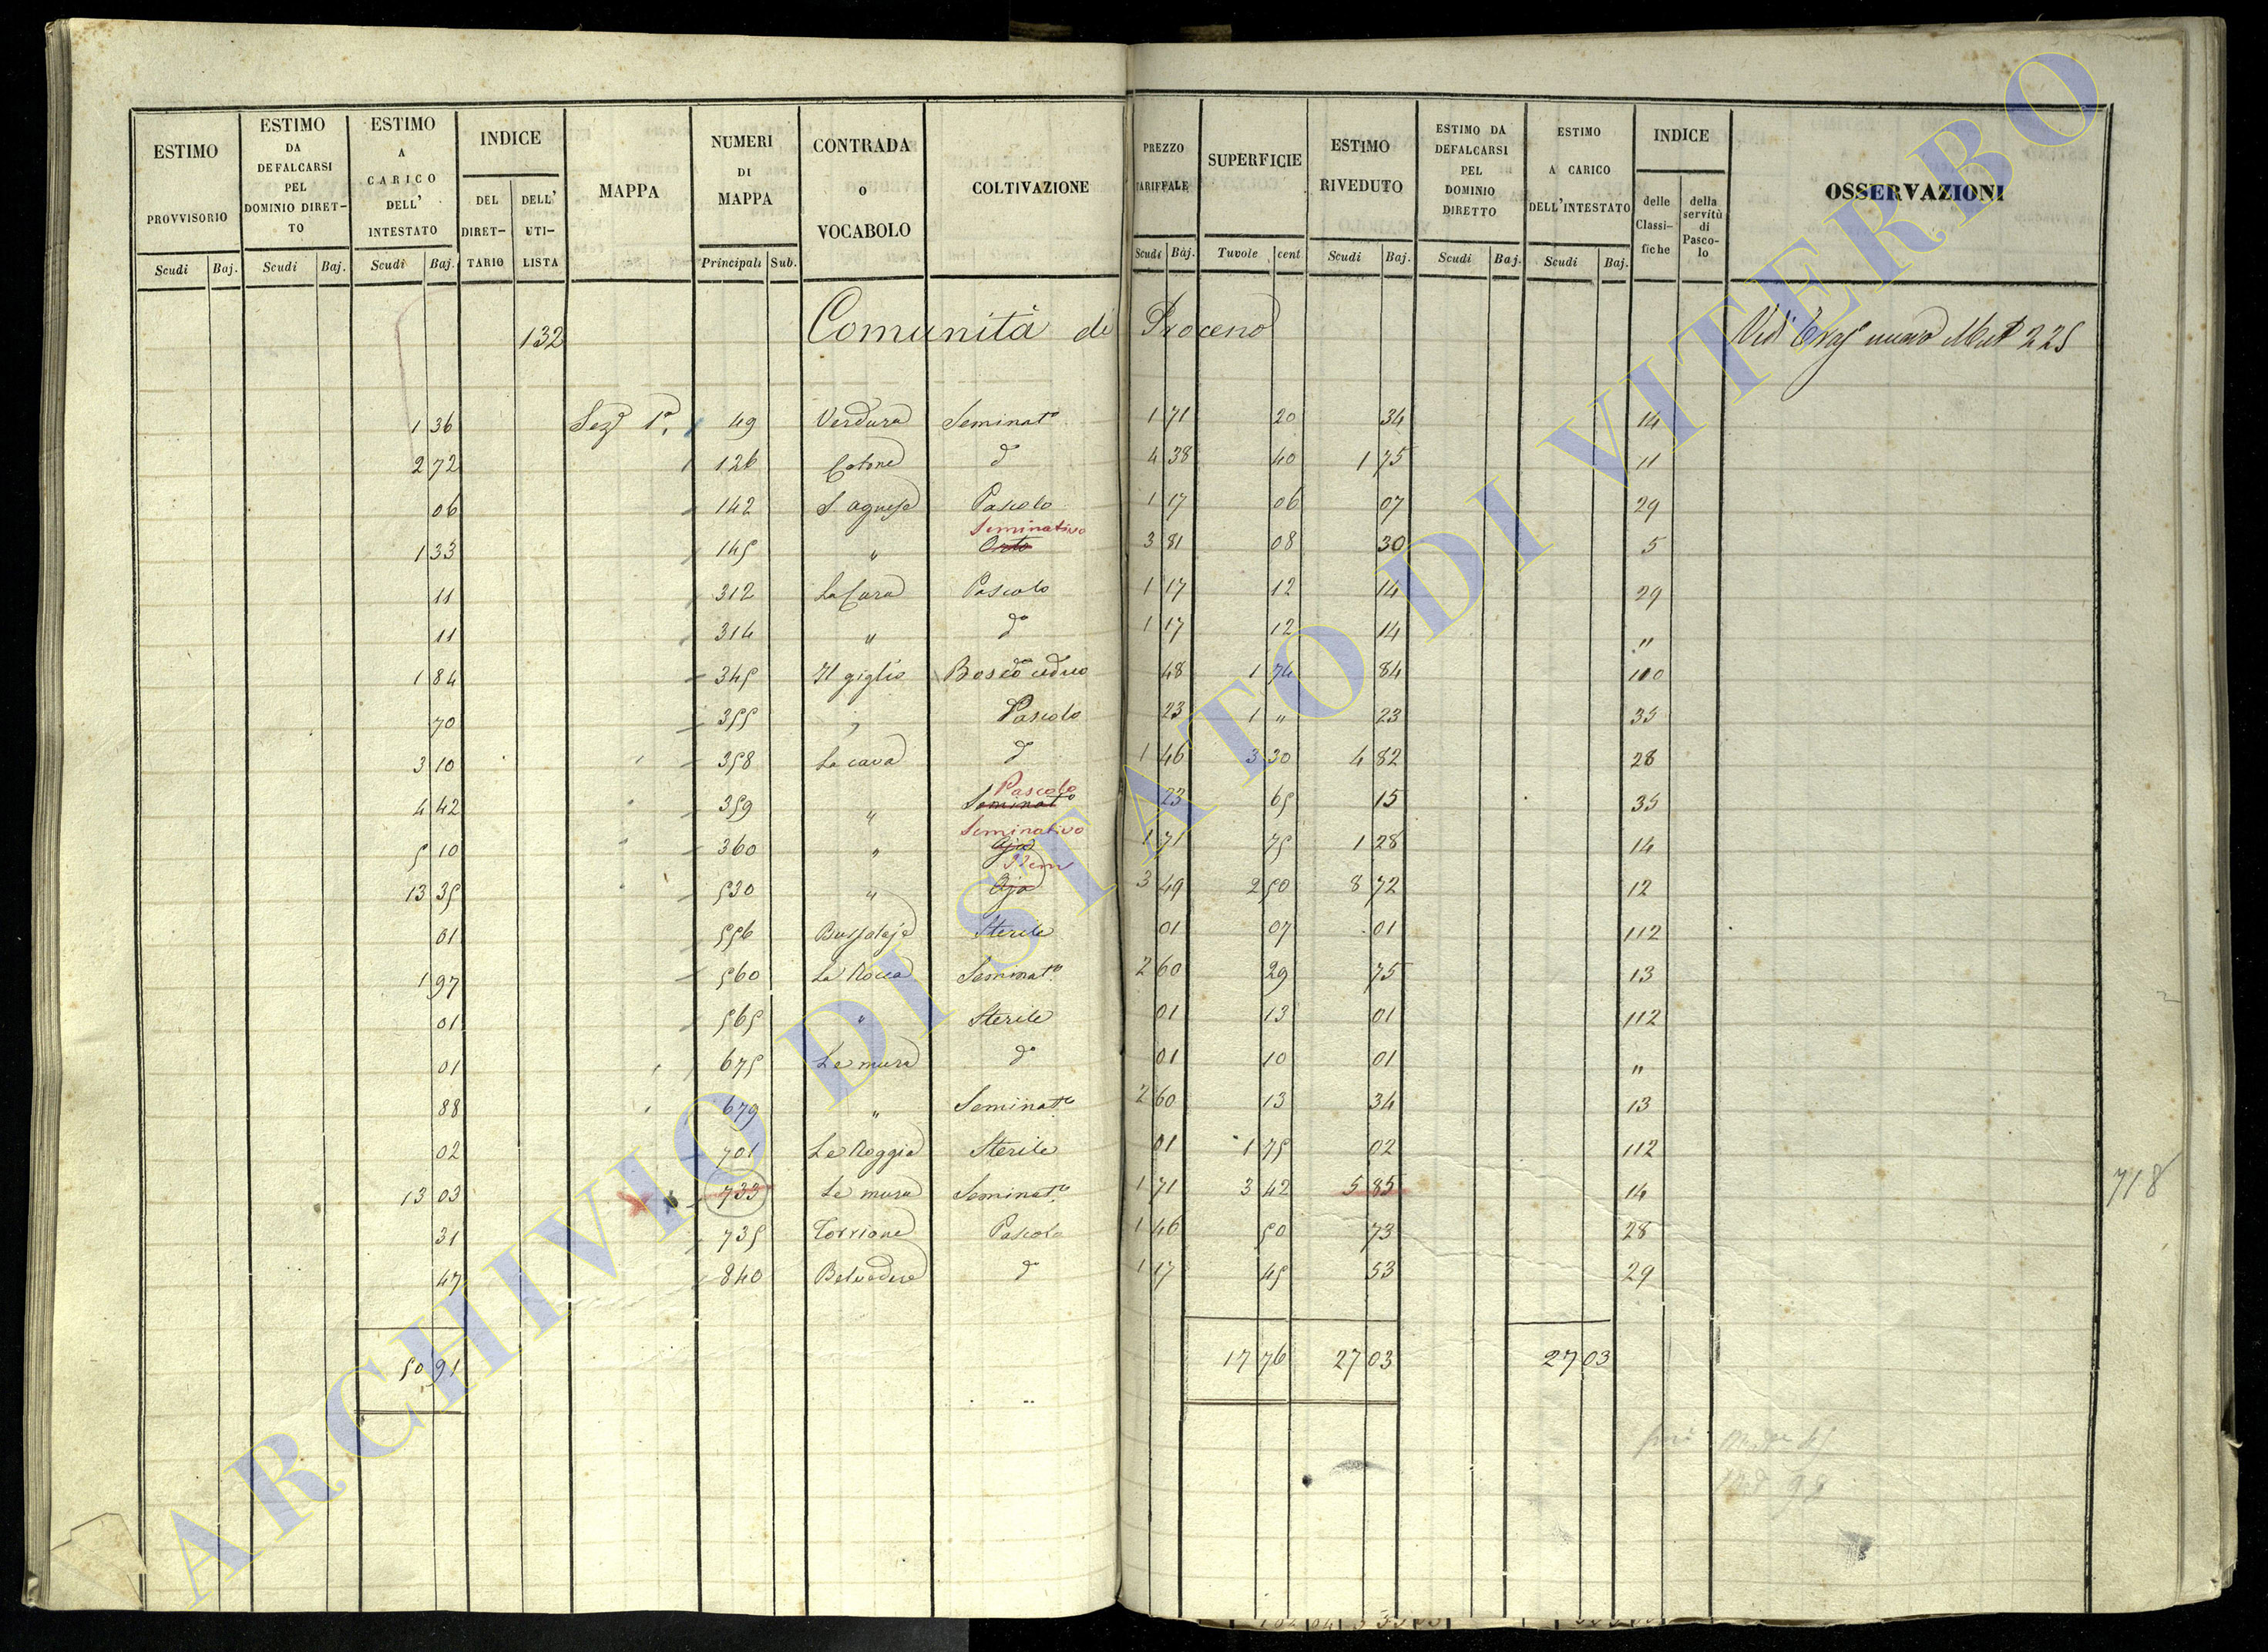 ESTIMO PROVVISORIO Scudi Baj.
ESTIMO DA DEFALCARSI PEL DOMINIO DIRET- TO Scudi Baj.
ESTIMO A CARICO DELL' INTESTATO Scudi Baj.
INDICE DEL DIRET- TARIO DELL' UTI- LISTA
MAPPA
NUMERI DI MAPPA Principali Sub.
CONTRADA o VOCABOLO
COLTIVAZIONE
PREZZO TARIFFALE Scudi Baj.
SUPERFICIE Tavole cent
ESTIMO RIVEDUTO Scudi Baj.
ESTIMO DA DEFALCARSI PEL DOMINIO DIRETTO Scudi Baj.
ESTIMO A CARICO DELL'INTESTATO Scudi Baj.
INDICE delle Classi- fiche della servitù di Pasco- lo
OSSERVAZIONI
132 Comunità di Proceno Vedi nuovo Mat 225
1 36 Sez. 1ª 49 Verdura Seminat.o 1 71 20 34 14
2 72 126 Cotone d 4 38 40 1 75 11
06 142 S Agnese Pascolo 1 17 06 07 29
Seminativo
1 33 145 " Orto 3 81 08 30 5
11 312 La Cura Pascolo 1 17 12 14 29
11 314 " d.o 1 17 12 14 "
1 84 345 Il giglio Bosco ceduo 48 1 74 84 110
70 355 " Pascolo 23 1 " 23 35
3 10 358 La cava d 1 46 3 30 4 82 28
Pascolo
4 42 359 " Seminat.o 23 65 15 35
Seminativo
5 10 360 " Aja 1 71 75 1 28 14
Idem
13 35 530 " Aja 3 49 2 50 8 72 12
01 556 Bussolaja Sterile 01 07 01 112
1 97 560 La Rocca Seminat.o 2 60 29 75 13
01 565 " Sterile 01 13 01 112
01 675 Le mura d.o 01 10 01 "
88 679 " Seminat.o 2 60 13 34 13
02 701 La Roggia Sterile 01 1 75 02 112
13 03 733 Le mura Seminat.o 1 71 3 42 5 85 14 718
31 735 Torrione Pascolo 1 46 50 73 28
47 840 Belvedere d 1 17 45 53 29
50 91 17 76 27 03 27 03
98
ARCHIVIO DI STATO DI VITERBO